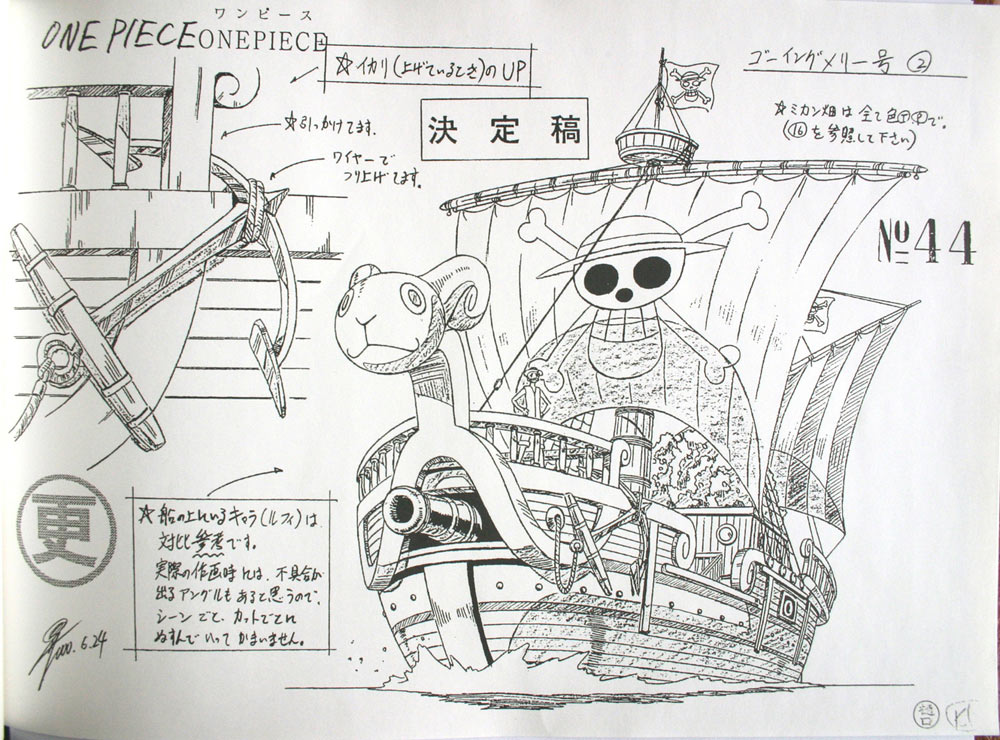 ワンピース
ONE PIECE ONEPIECE
☆イカリ(上げているとき)のUP
ゴーイングメリー号 ②
決定稿
☆引っかけてます。
ワイヤーで
つり上げてます。
☆ミカン畑は全て色
(⑯を参照して下さい)
No 44
更
☆船の上にいるキャラ(ルフィ)は
対比参考です。
実際の作画時には、不具合が
出るアングルもあると思うので、
シーンごと、カットごとに
ぬすんでいってかまいません。
6.24